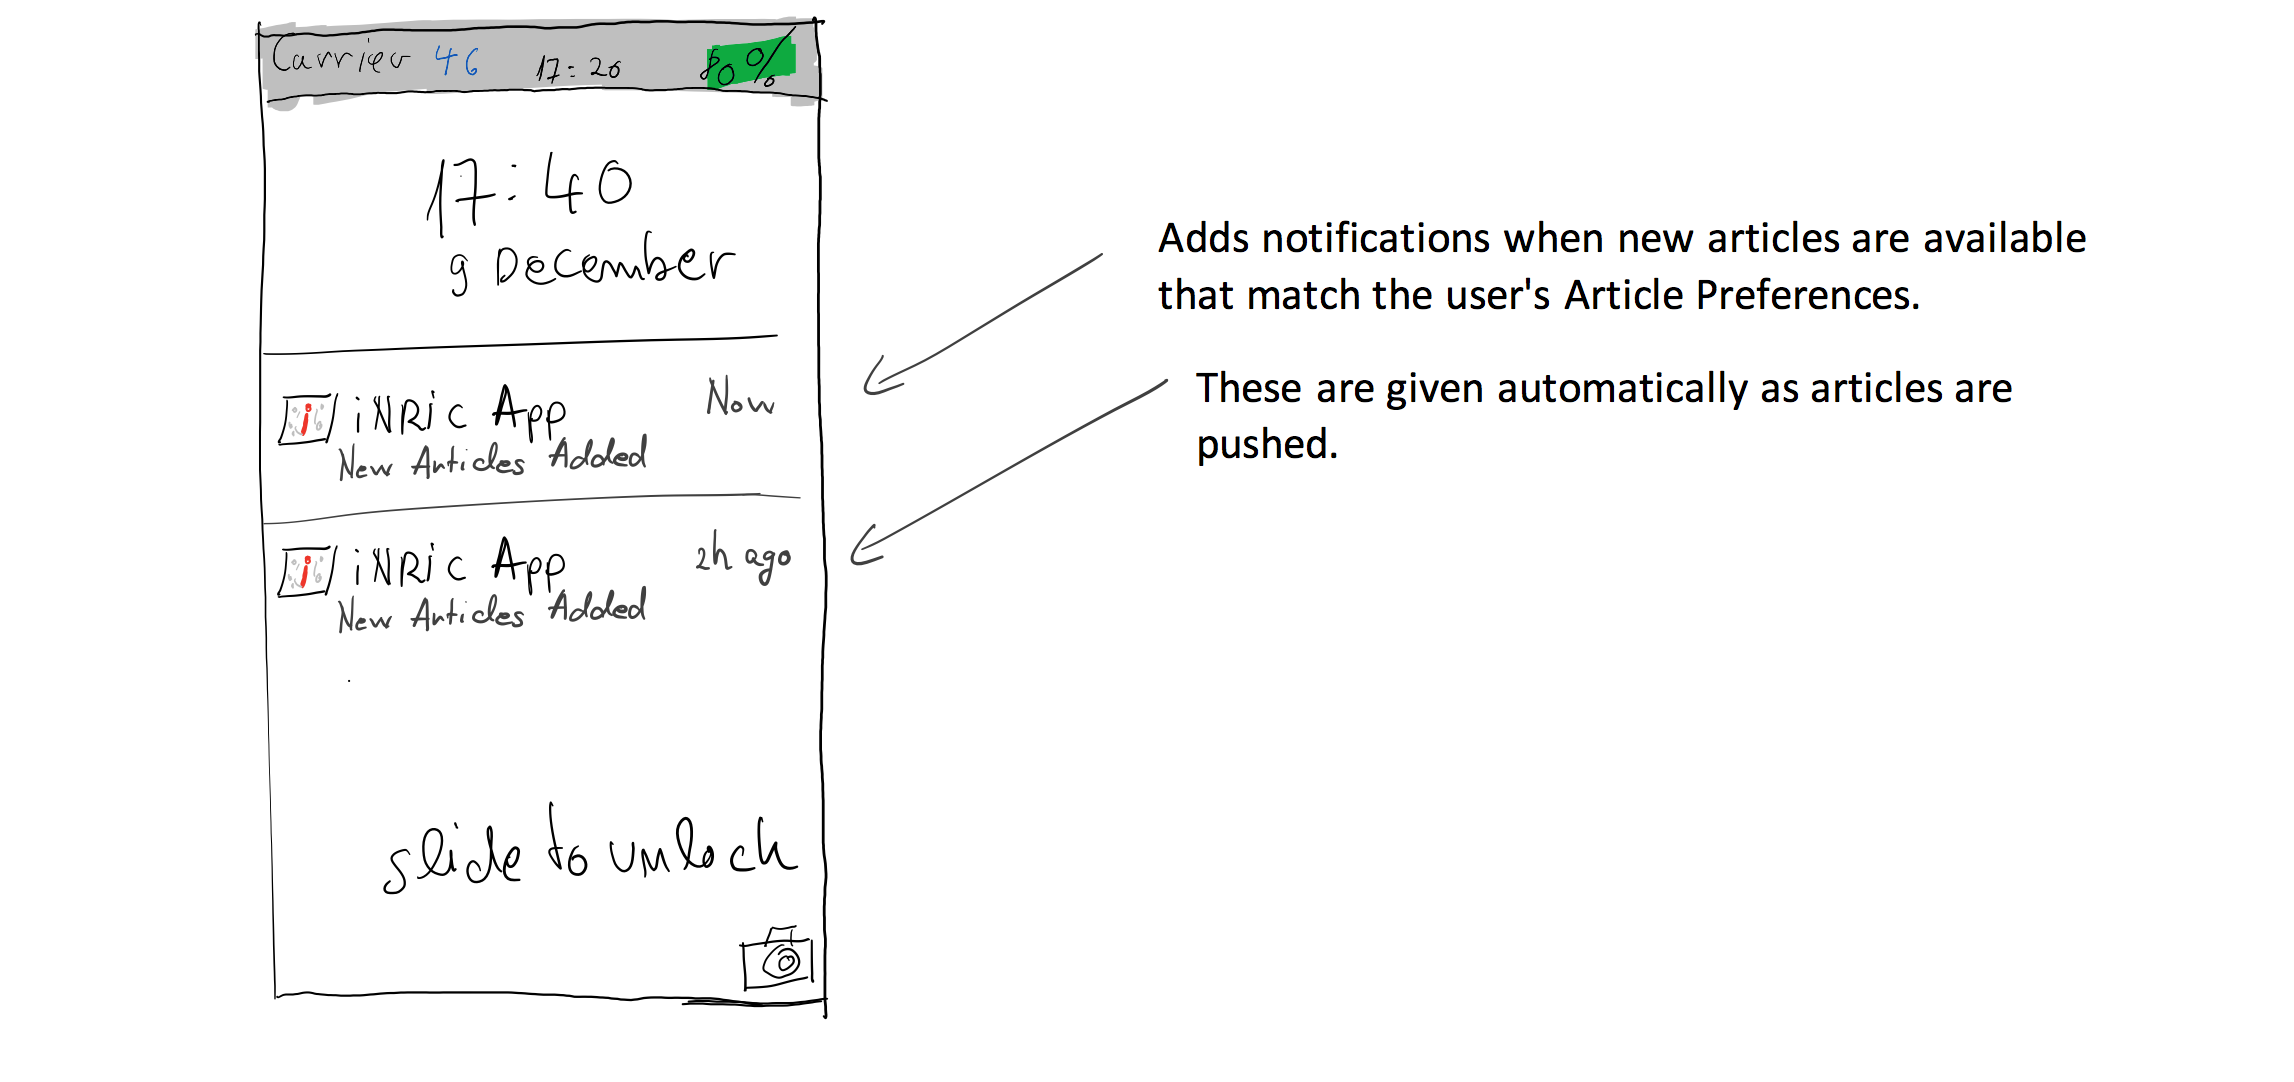 Carrier 4G 17:20 80%
17:40
9 December
iNRiC App Now
New Articles Added
iNRiC App 2h ago
New Articles Added
slide to unlock
Adds notifications when new articles are available
that match the user's Article Preferences.
These are given automatically as articles are
pushed.